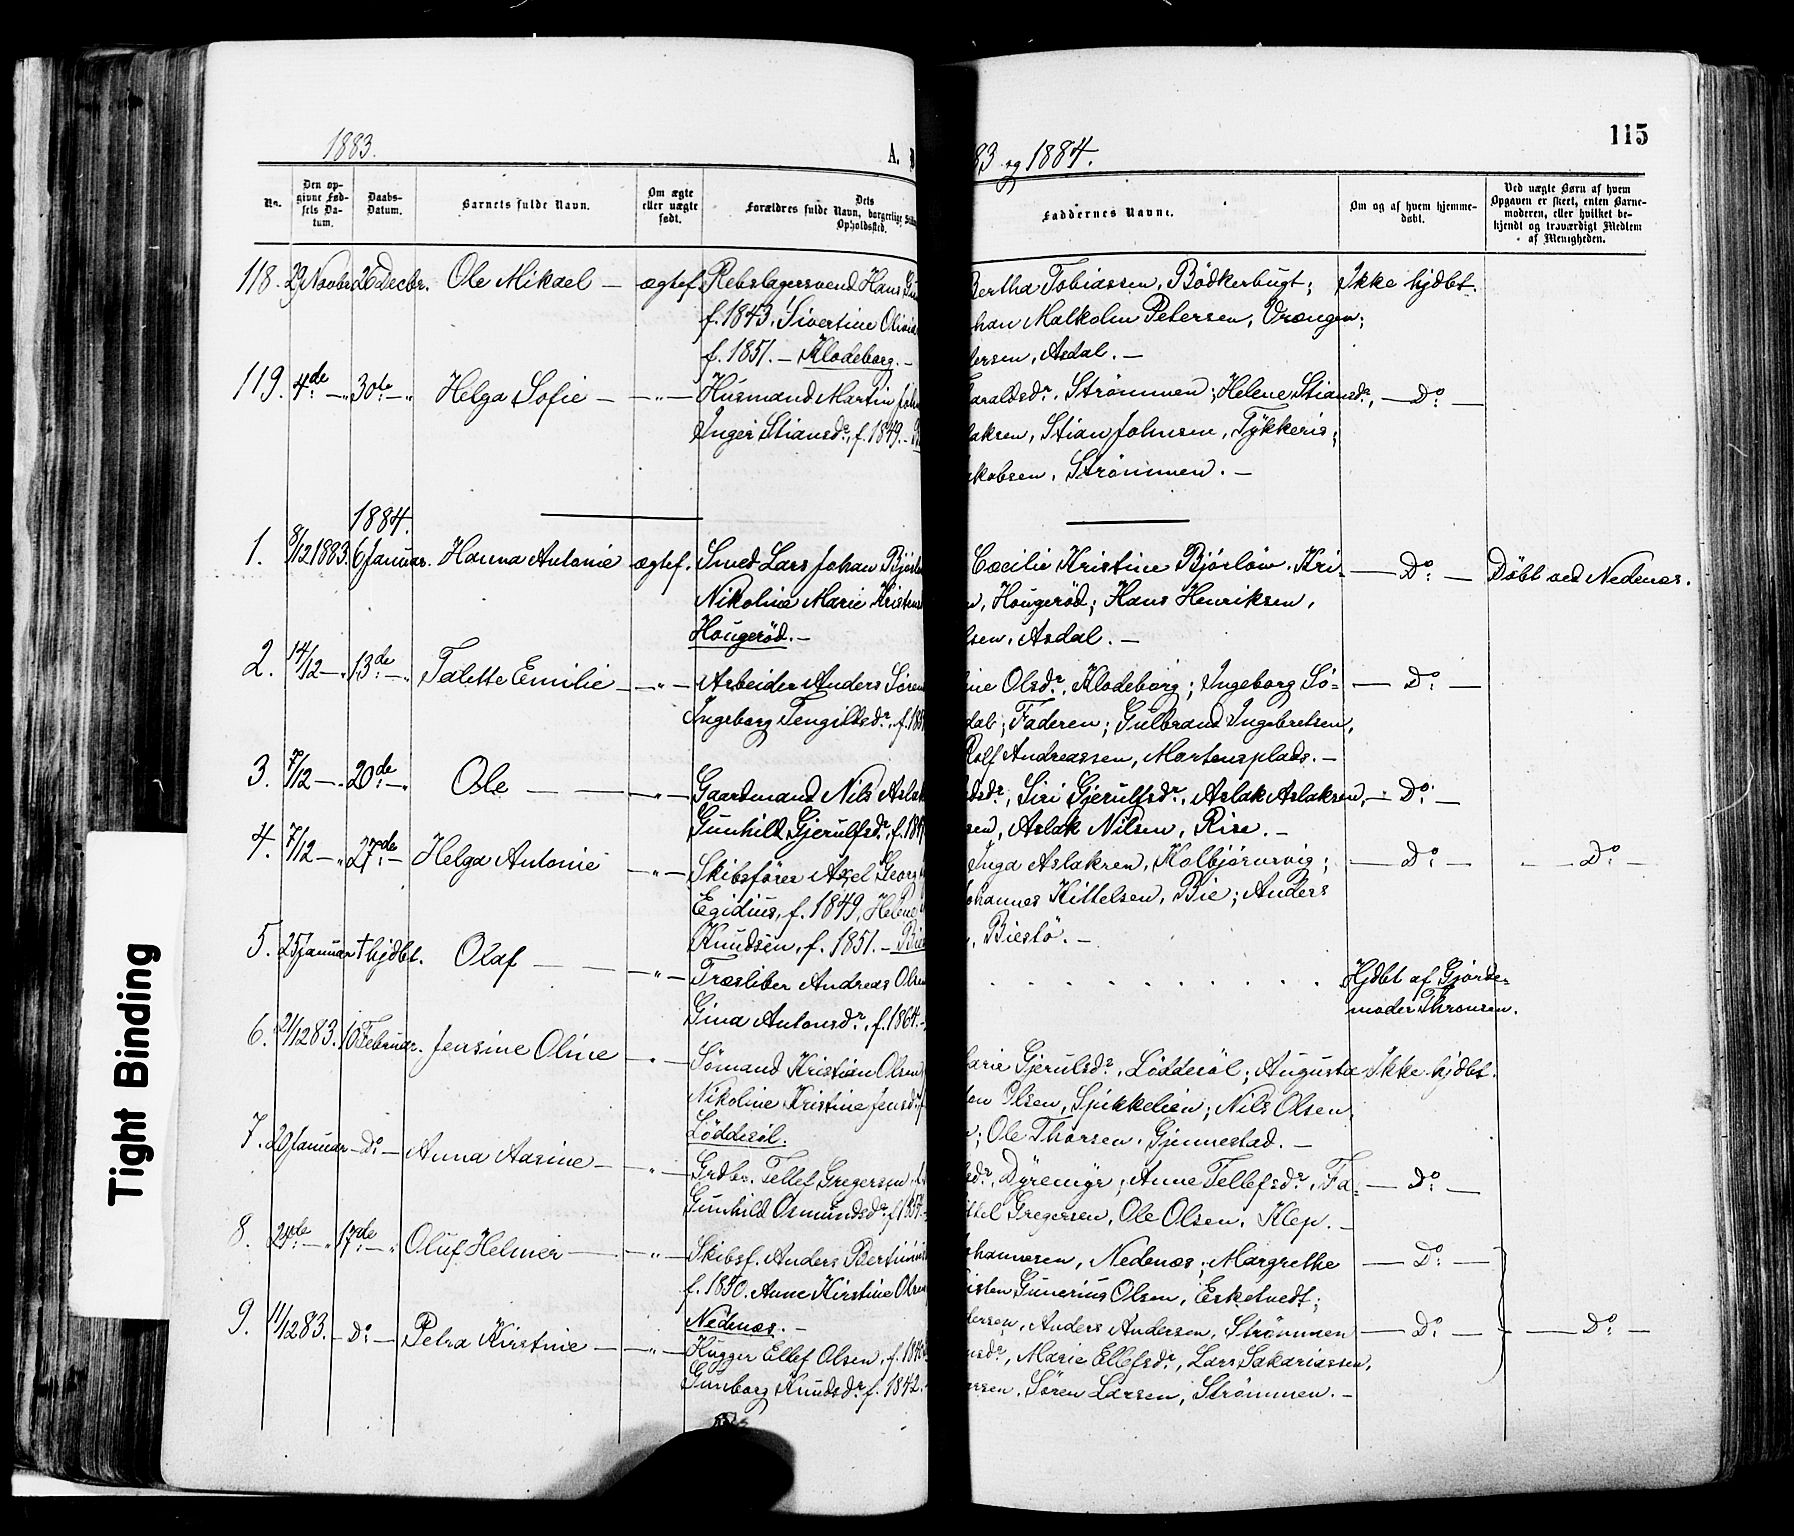 1883.
A.
83 og 1884.
115
No.
Den opgivne Fødsels Datum.
Daabs-Datum.
Barnets fulde Navn.
Om ægte eller uægte født.
Dets Forældres fulde Navn, borgerlige Opholdssted.
Faddernes Navne.
Om og af hvem hjemmedøbt.
Ved uægte Børn af hvem Opgaven er skeet, enten Barnemoderen, eller hvilket bekjendt og troværdigt Medlem af Menigheden.
118. 29 Novbr 26 Decbr. Ole Mikael — ægtef. Rebslagersvend Hans
f. 1843. Sivertine Olivia
f. 1851. — Klodeborg. —
Bertha Tobiassen, Bödkerbugt; Ikke hjdbt.
han Malkolm Petersen, Vrængen;
dersen, Asdal. —
119. 4de — " 30te — " Helga Sofie — — " — Husmand Martin John
Inger Stiansdr., f. 1849. —
Haraldsdr. Strömmen; Helene Stiansdr., — Do —
laksen, Stian Johnsen, Tykkeris;
kobsen, Strömmen. —
1884.
1. 8/12 1883. 6 Januar. Hanna Antonie ægtef. Smed Lars Johan Bjørl
Nikoline Marie Kristens
Hougerød. —
Cæcilie Kristine Bjørløw, Kri- — Do: — Döbt ved Nedenæs.
n, Hougeröd; Hans Henriksen,
lsen, Asdal. —
2. 14/12 — " 13de — " Talette Emilie — — " — Arbeider Anders Sören
Ingeborg Tengilsdr., f. 185
ine Olsdr., Klodeborg; Ingeborg Sö- — Do: —
dal; Faderen; Gulbrand Ingebretsen,
Rolf Andreassen, Mortensplads. —
3. 7/12 — " 20de — " Ole — — " — Gaardmand Nils Aslak
Gunhild Gjerulfsdr., f. 18
dsdr., Siri Gjerulfsdr., Aslak Aslaksen, — Do: —
sen, Aslak Nilsen, Rise. —
4. 7/12 — " 27de — Helga Antonie — " — Skibsfører Axel Georg
Egidius, f. 1849, Helene
Knudsen, f. 1851. — Bie
Inga Aslaksen, Kolbjørnsvig; — Do: — — Do: —
ohannes Kittelsen, Bie; Anders
, Biestö. —
5. 25 Januar † hjdbt. Olaf — — " — Træsliber Andreas Olsen
Gina Antonsdr., f. 1864. —
Hjdbt af Gjorde-
moder Thronsen.
6. 21/12 83. 10 Februar. Jensine Oline — " — Sömand Kristian Olsen
Nikoline Kristine Jensdr. f
Löddesöl.
Marie Gjerulsdr., Löddesöl; Augusta Ikke hjdbt.
ton Olsen, Spikkelien; Nils Olsen,
n; Ole Thorsen, Gjennestad. —
7. 20 Januar — Do — Anna Aasine — — " — Grdbr. Tellef Gregersen,
Gunhild Osmundsdr., f. 1854. —
lsdr., Dyremyr; Anne Tellefsdr., Fa- — Do: —
ttel Gregersen, Ole Olsen, Klep. —
8. 24de — " 17de — " Oluf Helmer — — " — Skibsf. Anders Bertinius
f. 1850. Anne Kirstine Olsen
Nedenæs. —
Johannesen, Nedenæs; Margrethe — Do: —
isten Gunerius Olsen, Esketvedt;
dersen, Anders Andersen, Strömmen
9. 11/12 83. — Do: — Petra Kirstine — — " — Hugger Ellef Olsen, f. 184
Gunborg Knudsdr. f. 1842. —
— Do: — — Do: —
nsdr., Marie Ellefsdr., Lars Sakariassen,
rsen, Sören Larsen, Strömmen. —
Tight Binding